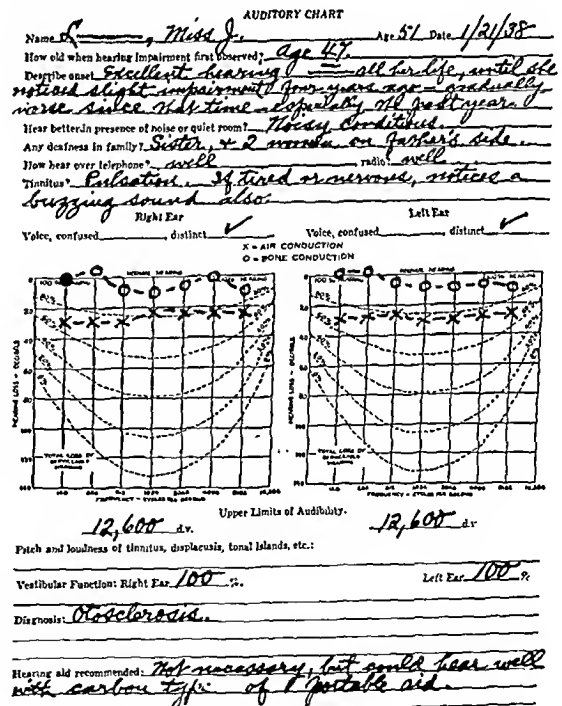 AUDITORY CHART
Name L———, Miss J. Age 51 Date 1/21/38
How old when hearing impairment first observed? Age 47.
Describe onset Excellent hearing all her life, until she
noticed slight impairment four years ago – gradually
worse since that time – especially the past year.
Hear better in presence of noise or quiet room? Noisy conditions.
Any deafness in family? Sister, + 2 women on father's side.
How hear over telephone? well radio? well
Tinnitus? Pulsation. If tired or nervous, notices a
buzzing sound also.
Right Ear Left Ear
Voice, confused distinct ✓ Voice, confused distinct ✓
X - AIR CONDUCTION
O - BONE CONDUCTION
NORMAL HEARING NORMAL HEARING
HEARING LOSS - DECIBELS HEARING LOSS - DECIBELS
TOTAL LOSS OF TOTAL LOSS OF
HEARING HEARING
FREQUENCY - CYCLES PER SECOND FREQUENCY - CYCLES PER SECOND
Upper Limits of Audibility.
12,600 d.v. 12,600 d.v
Pitch and loudness of tinnitus, displacusis, tonal islands, etc.:
Vestibular Function: Right Ear 100 %. Left Ear 100 %
Diagnosis: Otosclerosis.
Hearing aid recommended: Not necessary, but could hear well
with carbon type of portable aid.